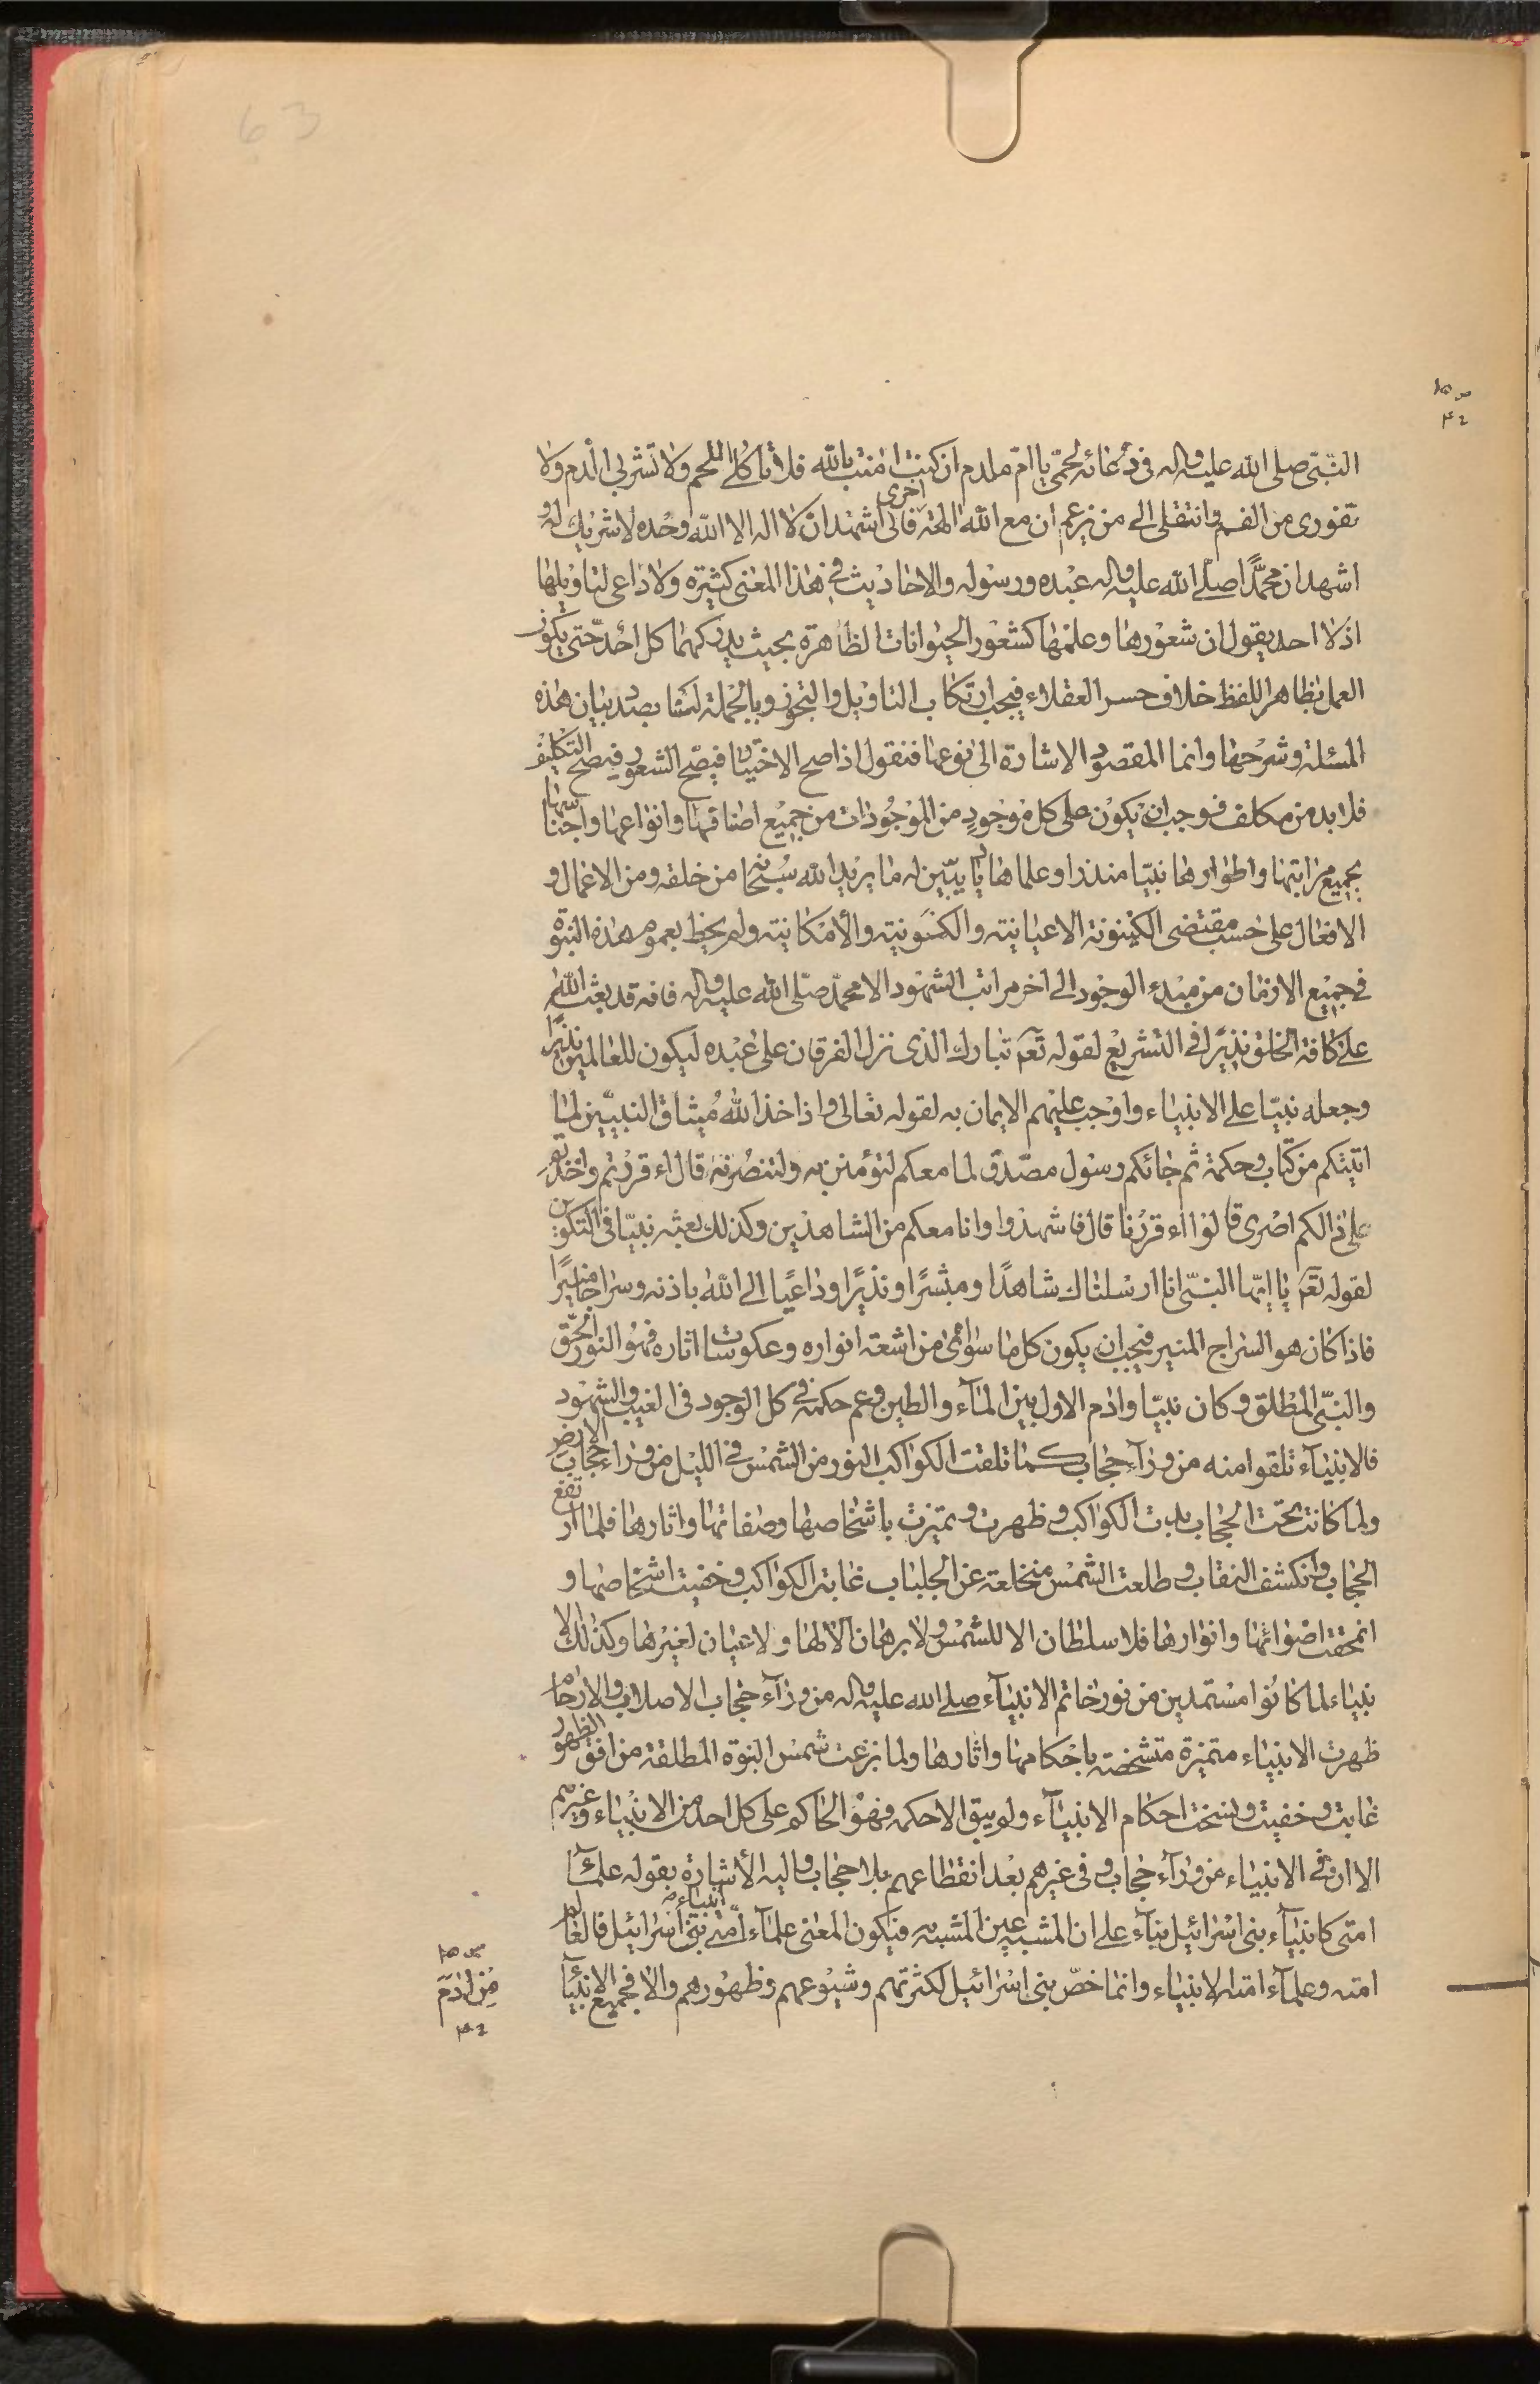 63
النبّى صلى الله عليه واله فى دعائه لحمّى يا امّ ملدم ان كنت امنت بالله فلا تاكلى اللحم ولا تشربى الدم ولا
تفورى من الفم وانتقلى الى من زعم ان مع الله الهة اخرى فانى اشهد ان لا اله الا الله وحده لا شريك له و
اشهد ان محمّدًا صلّى الله عليه واله عبده ورسوله والاحاديث فى هذا المعنى كثيرة ولا داعى لتاويلها
اذ لا احد يقول ان شعورها وعلمها كشعور الحيوانات الظاهرة بحيث يدركهما كل احد حتى يكون
العمل بظاهر اللفظ خلاف حسر العقلاء فيجب ارتكاب التاويل والتجوز وبالجملة لسنا بصدد بيان هذه
المسئلة وشرحها وانما المقصود الاشارة الى نوعها فنقول اذا صح الاختيار فيصّح الشعور فيصّح التكليف
فلا بد من مكلف فوجب ان يكون على كل موجودٍ من الموجودات من جميع اصنافها وانواعها واجناسها
بجميع مراتبها واطوارها نبيّا منذرا وعلما هاديا يبيّن له ما يريد الله سبحانه من خلقه ومن الاعمال و
الافعال على حسب مقتضى الكينونة الاعيانية والكونية والامكانية ولم يحظ بعموم هذه النبوة
فى جميع الازمان من مبدء الوجود الى اخر مراتب الشهود الا محمّد صلّى الله عليه واله فانه قد بعثه الله
على كافة الخلق نذيرًا فى التشريع لقوله تعم تبارك الذى نزل الفرقان على عبده ليكون للعالمين نذيرًا
وجعله نبيّا على الانبياء واوجب عليهم الايمان به لقوله تعالى واذ اخذ الله ميثاق النبيّين لما
اتيتكم من كتاب وحكمة ثم جائكم رسول مصدّق لما معكم لتؤمنن به ولتنصرنه قال ءاقررتم واخذتم
على ذالكم اصرى قالوا اءقررنا قال فاشهدوا وانا معكم من الشاهدين وكذلك بعثه نبيّا فى التكوين
لقوله تعم يا ايّها النبىّ انا ارسلناك شاهدًا ومبشرًا ونذيرًا وداعيًا الى الله باذنه وسراجا منيرًا
فاذا كان هو السراج المنير فيجب ان يكون كل ما سواه من اشعة انواره وعكوسات اثاره فهو النور الحّق
والنبّى المطلق وكان نبيّا وادم الاول بين المآء والطين وعم حكمه فى كل الوجود فى الغيب والشهود
فالانبيآء تلقوا منه من ورآء حجاب كما تلقت الكواكب النور من الشمس فى الليل من وراء حجاب الارض
ولما كانت تحت الحجاب بدت الكواكب وظهرت وتميزت باشخاصها وصفاتها واثارها فلما ارتفع
الحجاب وانكشف النقاب وطلعت الشمس منخلعة عن الجلباب غابت الكواكب وخفيت اشخاصها و
انمحقت اضوائها وانوارها فلا سلطان الا للشمس ولا برهان الا لها ولا عيان لغيرها وكذلك الا
نبياء لما كانوا مستمدين من نور خاتم الانبيآء صلى الله عليه واله من ورآء حجاب الاصلاب والارحام
ظهرت الانبياء متميزة متشخصة باحكامها واثارها ولما بزغت شمس النبوة المطلقة من افق الظهور
غابت وخفيت ونسخت احكام الانبيآء ولم يبق الا حكمه فهو الحاكم على كل احد من الانبياء وغيرهم
الا ان فى الانبياء من ورآء حجاب وفى غيرهم بعد انقطاعهم بلا حجاب واليه الاشارة بقوله علمآء
امتى كانبيآء بنى اسرائيل بنآء على ان المشبه عين المشبه به فيكون المعنى علمآء امتى انبياء بنى اسرائيل فالعالم
امته وعلمآء امته الانبياء وانما خصّ بنى اسرائيل لكثرتهم وشيوعهم وظهورهم والا فجميع الانبيآء
من ادم